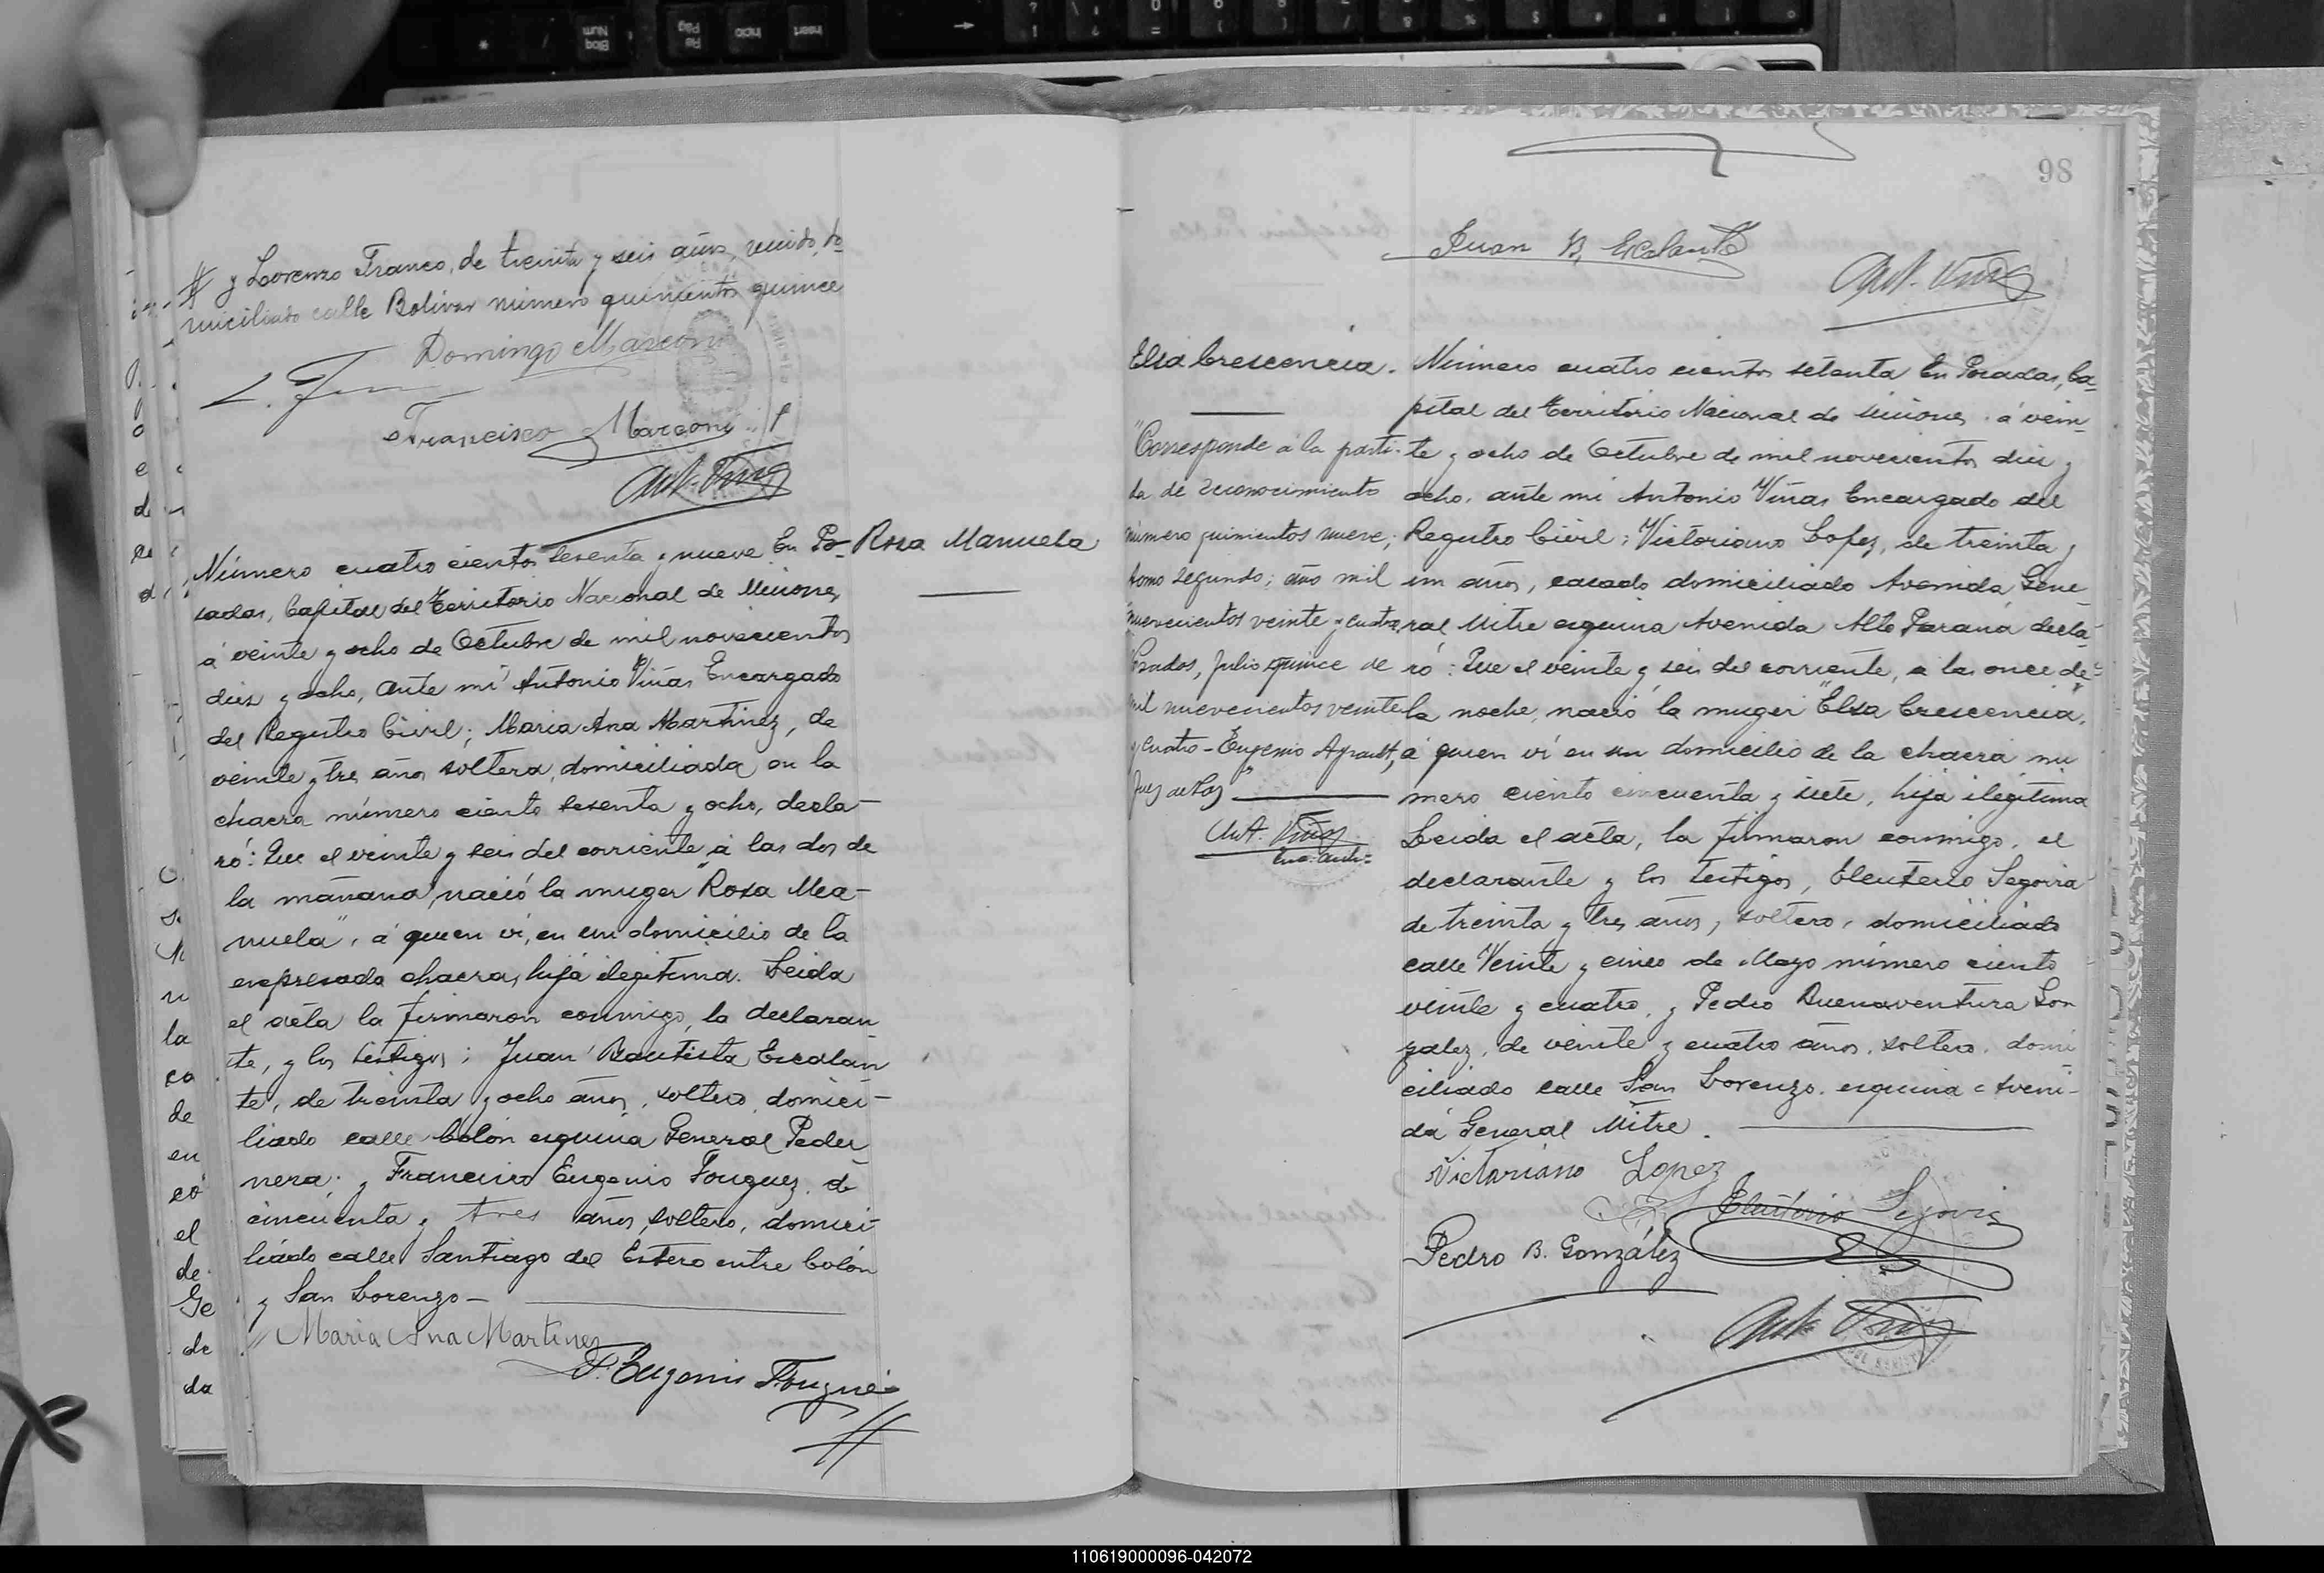 y Lorenzo Franco, de treinta y seis años, viudo, do
miciliado calle Bolivar número quinientos quince
Domingo Marconi
L. F
Francisco Marconi
Ant. Viñas
Rosa Manuela
Número cuatro cientos sesenta y nueve En Po-
sadas, Capital del Territorio Nacional de Misiones
á veinte y ocho de Octubre de mil novecientos
diez y ocho, ante mi Antonio Viñas Encargado
del Registro Civil; Maria Ana Martinez, de
veinte y tres años soltera, domiciliada en la
chacra número ciento sesenta y ocho, decla-
ró: Que el veinte y seis del corriente, á las dos de
la mañana, nació la muger "Rosa Ma-
nuela", á quien ví, en un domicilio de la
expresada chacra, hija ilegitima. Leida
el acta la firmaron conmigo, la declaran
te, y los testigos; Juan Bautista Escalan
te, de treinta y ocho años, soltero, domici-
liado calle Colón esquina General Peder
nera; y Francisco Eugenio Fouguez, de
cincuenta y tres años, soltero, domici-
liado calle Santiago del Estero entre Colón
y San Lorenzo-
Maria Ana Martinez
F. Eugenio Fougue
98
Juan B. Escalante
Ant. Viñas
Elsa Crescencia.
"Corresponde a la parti-
da de reconocimiento
número quinientos nueve;
tomo segundo; año mil
nuevecientos veinte y cuatro,
Posadas, Julio quince de
mil nuevecientos veinte
y cuatro - Eugenio Ayrault,
Juez de Paz"
Ant. Viñas
Número cuatro cientos setenta En Posadas, Ca-
pital del Territorio Nacional de Misiones á vein-
te y ocho de Octubre de mil novecientos diez y
ocho, ante mi Antonio Viñas Encargado del
Registro Civil; Victoriano Lopez, de treinta y
un años, casado domiciliado Avenida Gene
ral Mitre esquina Avenida Alto Paraná decla-
ró: Que el veinte y seis del corriente, a las once de
la noche, nació la muger "Elsa Crescencia",
á quien ví en su domicilio de la chacra nú
mero ciento cincuenta y siete, hija ilegitima
Leida el acta, la firmaron conmigo, el
declarante y los testigos, Eleuterio Segovia
de treinta y tres años, soltero, domiciliado
calle Veinte y cinco de Mayo número ciento
veinte y cuatro, y Pedro Buenaventura Gon
zalez, de veinte y cuatro años, soltero, domi
ciliado calle San Lorenzo esquina Aveni-
da General Mitre.
Victoriano Lopez
Eleuterio Segovia
Pedro B. González
Ant. Viñas
110619000096-042072